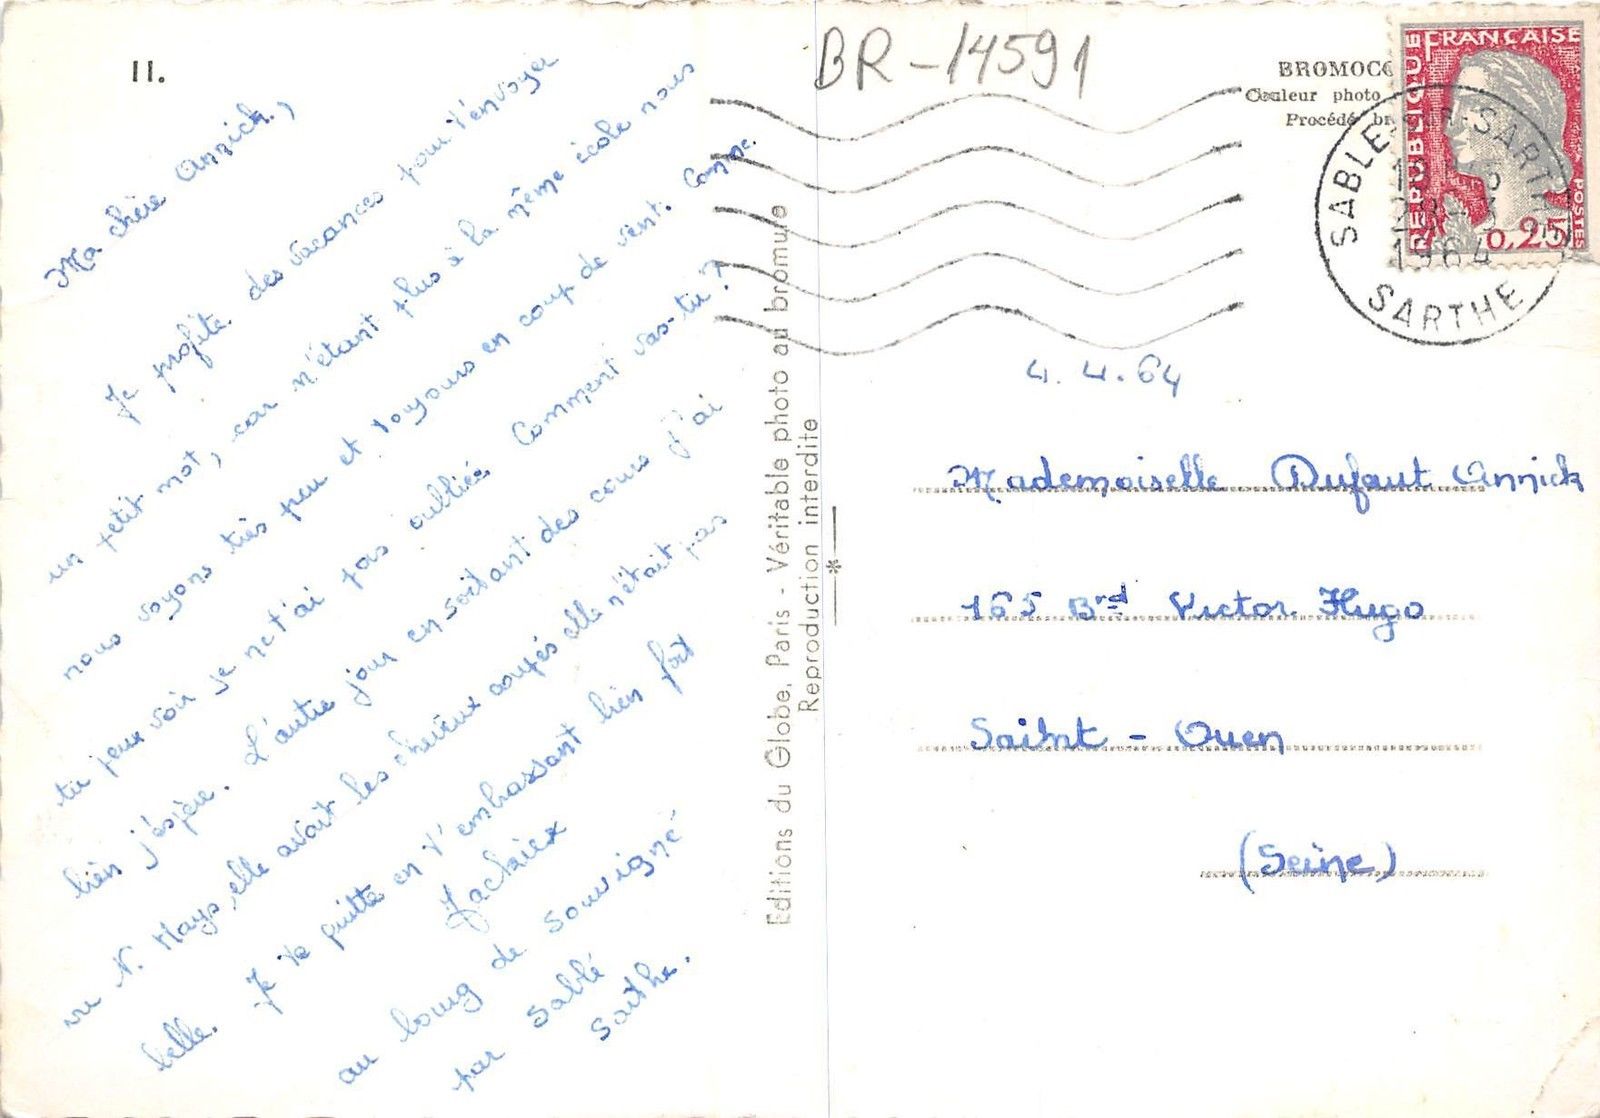 11.
Ma chère Annick,
Je profite des vacances pour t'envoyer
un petit mot, car n'étant plus à la même école nous
nous voyons très peu et toujours en coup de vent. Comme
tu peux voir je ne t'ai pas oubliée Comment vas-tu?
bien j'espère. L'autre jour en sortant des cours j'ai
vu N. Mays, elle avait les cheveux coupés elle n'était pas
belle. Je te quitte en t'embrassant bien fort
au bourg de Souvigné
par Sablé
Sarthe.
Editions du Globe, Paris - Véritable photo au bromure
Reproduction interdite
BR-14591
Couleur photo
Procédé
REPUBLIQUE FRANÇAISE
POSTES
0,25
SABLE-SUR-SARTHE
1964
SARTHE
4.4.64
Mademoiselle Dufaut Annick
165 Brd Victor Hugo
Saint-Ouen
(Seine)